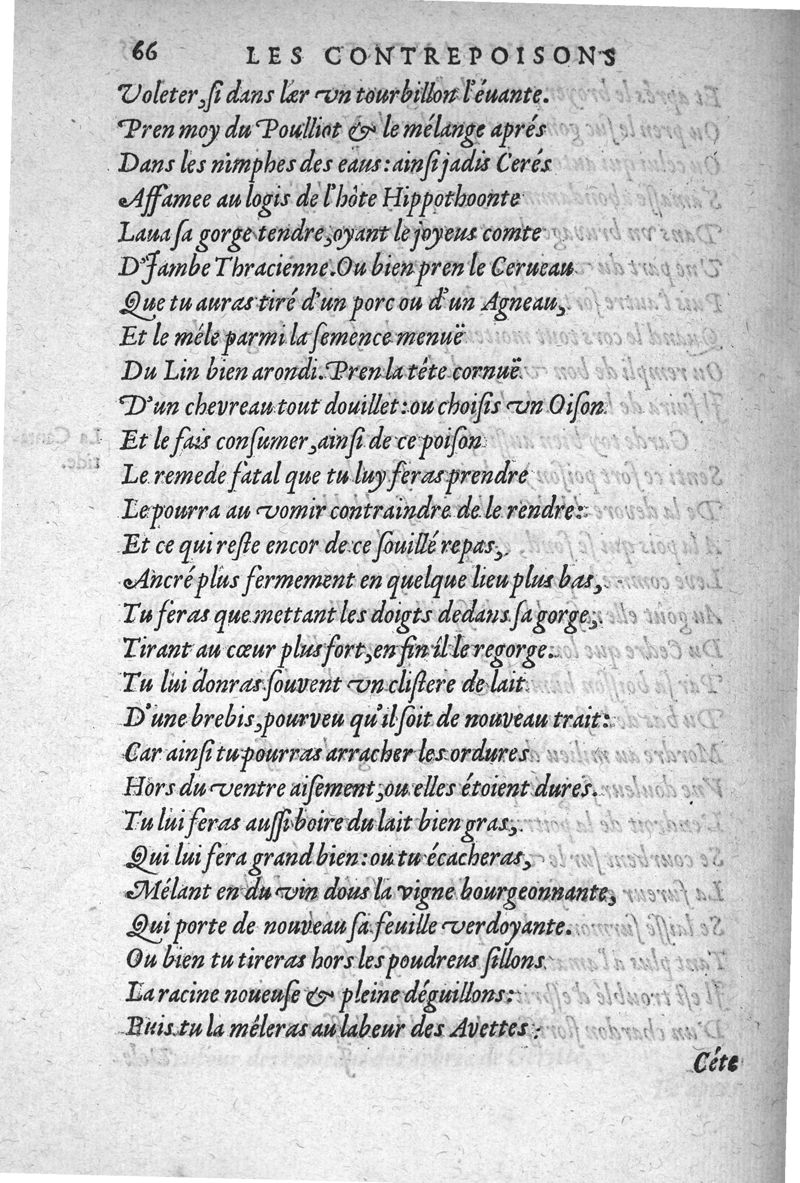 66 LES CONTREPOISONS
Voleter, si dans lær vn tourbillon l'évante.
Pren moy du Poulliot & le mélange aprés
Dans les nimphes des eaus: ainsi jadis Cerés
Affamee au logis de l'hôte Hippothoonte
Laua sa gorge tendre, oyant le joyeus comte
D'Jambe Thracienne. Ou bien pren le Cerueau
Que tu auras tiré d'un porc ou d'un Agneau,
Et le méle parmi la semence menuë
Du Lin bien arondi. Pren la téte cornuë
D'un chevreau tout douillet: ou choisis vn Oison
Et le fais consumer, ainsi de ce poison
Le remede fatal que tu luy feras prendre
Le pourra au vomir contraindre de le rendre:
Et ce qui reste encor de ce souillé repas,
Ancré plus fermement en quelque lieu plus bas,
Tu feras que mettant les doigts dedans sa gorge,
Tirant au cœur plus fort, en fin il le regorge.
Tu lui donras souvent vn clistere de lait
D'une brebis, pourveu qu'il soit de nouveau trait:
Car ainsi tu pourras arracher les ordures
Hors du ventre aisement, ou elles étoient dures.
Tu lui feras aussi boire du lait bien gras,
Qui lui fera grand bien: ou tu écacheras,
Mélant en du vin dous la vigne bourgeonnante,
Qui porte de nouveau sa feuille verdoyante.
Ou bien tu tireras hors les poudreus sillons
La racine noueuse & pleine d'éguillons:
Puis tu la méleras au labeur des Avettes:
Céte